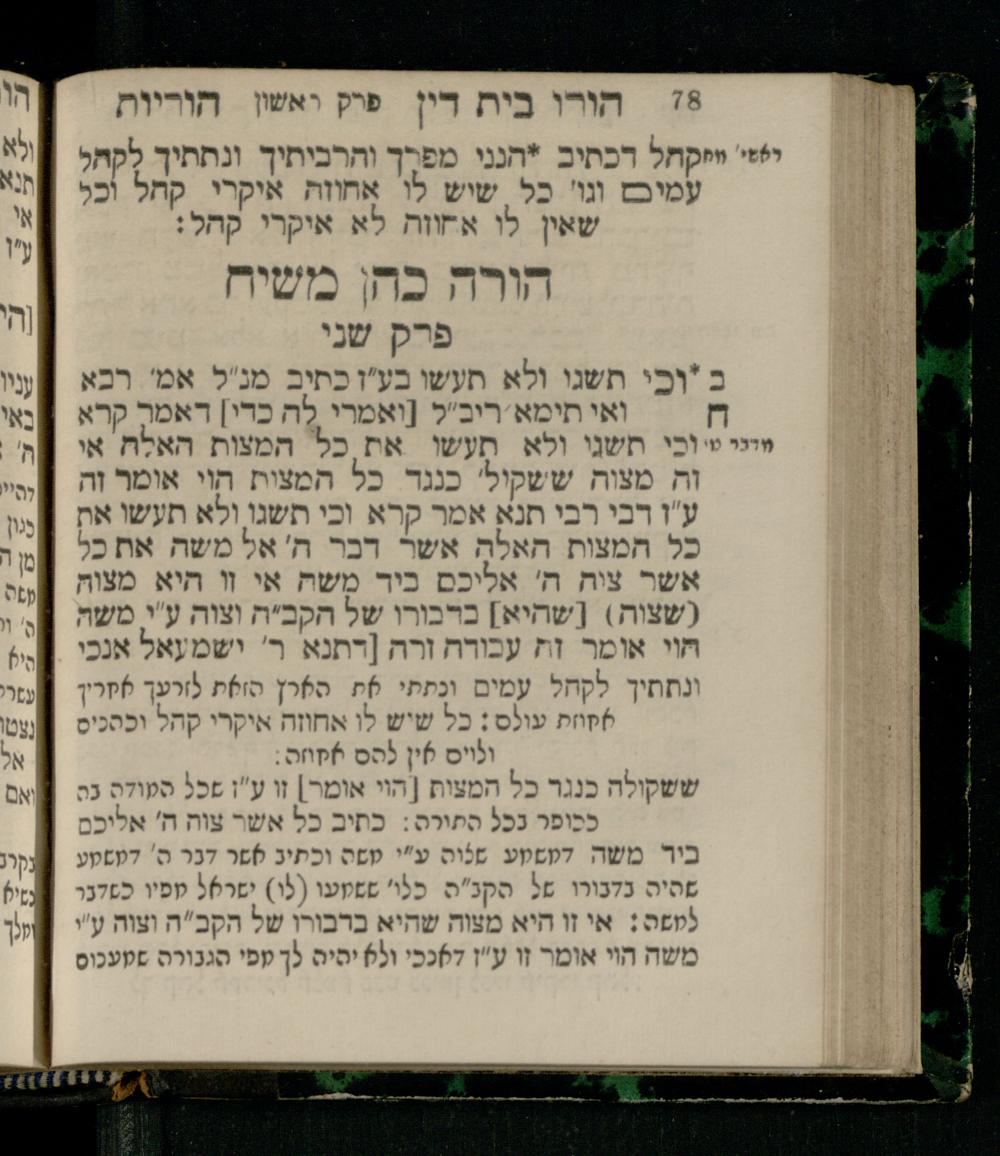 78 הורו בית דין פרק ראשון הוריות
קהל דכתיב *הנני מפרך והרביתיך ונתתיך לקהל
עמים וגו' כל שיש לו אחוזה איקרי קהל וכל
שאין לו אחוזה לא איקרי קהל:
הורה כהן משיח
פרק שני
ב *וכי תשגו ולא תעשו בע"ז כתיב מנ"ל אמ' רבא
ח ואי תימא ריב"ל [ואמרי לה כדי] דאמר קרא
וכי תשגו ולא תעשו את כל המצות האלה אי
זה מצוה ששקול' כנגד כל המצות הוי אומר זה
ע"ז דבי רבי תנא אמר קרא וכי תשגו ולא תעשו את
כל המצות האלה אשר דבר ה' אל משה את כל
אשר צוה ה' אליכם ביד משה אי זו היא מצוה
(שצוה) [שהיא] בדבורו של הקב"ה וצוה ע"י משה
הוי אומר זה עבודה זרה [דתנא ר' ישמעאל אנכי
ונתתיך לקהל עמים ונתתי את הארץ הזאת לזרעך אחריך
אחוזת עולם: כל שיש לו אחוזה איקרי קהל וכהנים
ולוים אין להם אחוזה:
ששקולה כנגד כל המצות [הוי אומר] זו ע"ז שכל המודה בה
ככופר בכל התורה: כתיב כל אשר צוה ה' אליכם
ביד משה דמשמע שצוה ע"י משה וכתיב אשר דבר ה' דמשמע
שהיה בדבורו של הקב"ה כלו' ששמעו (לו) ישראל מפיו כשדבר
למשה: אי זו היא מצוה שהיא בדבורו של הקב"ה וצוה ע"י
משה הוי אומר זו ע"ז דאנכי ולא יהיה לך מפי הגבורה שמענום